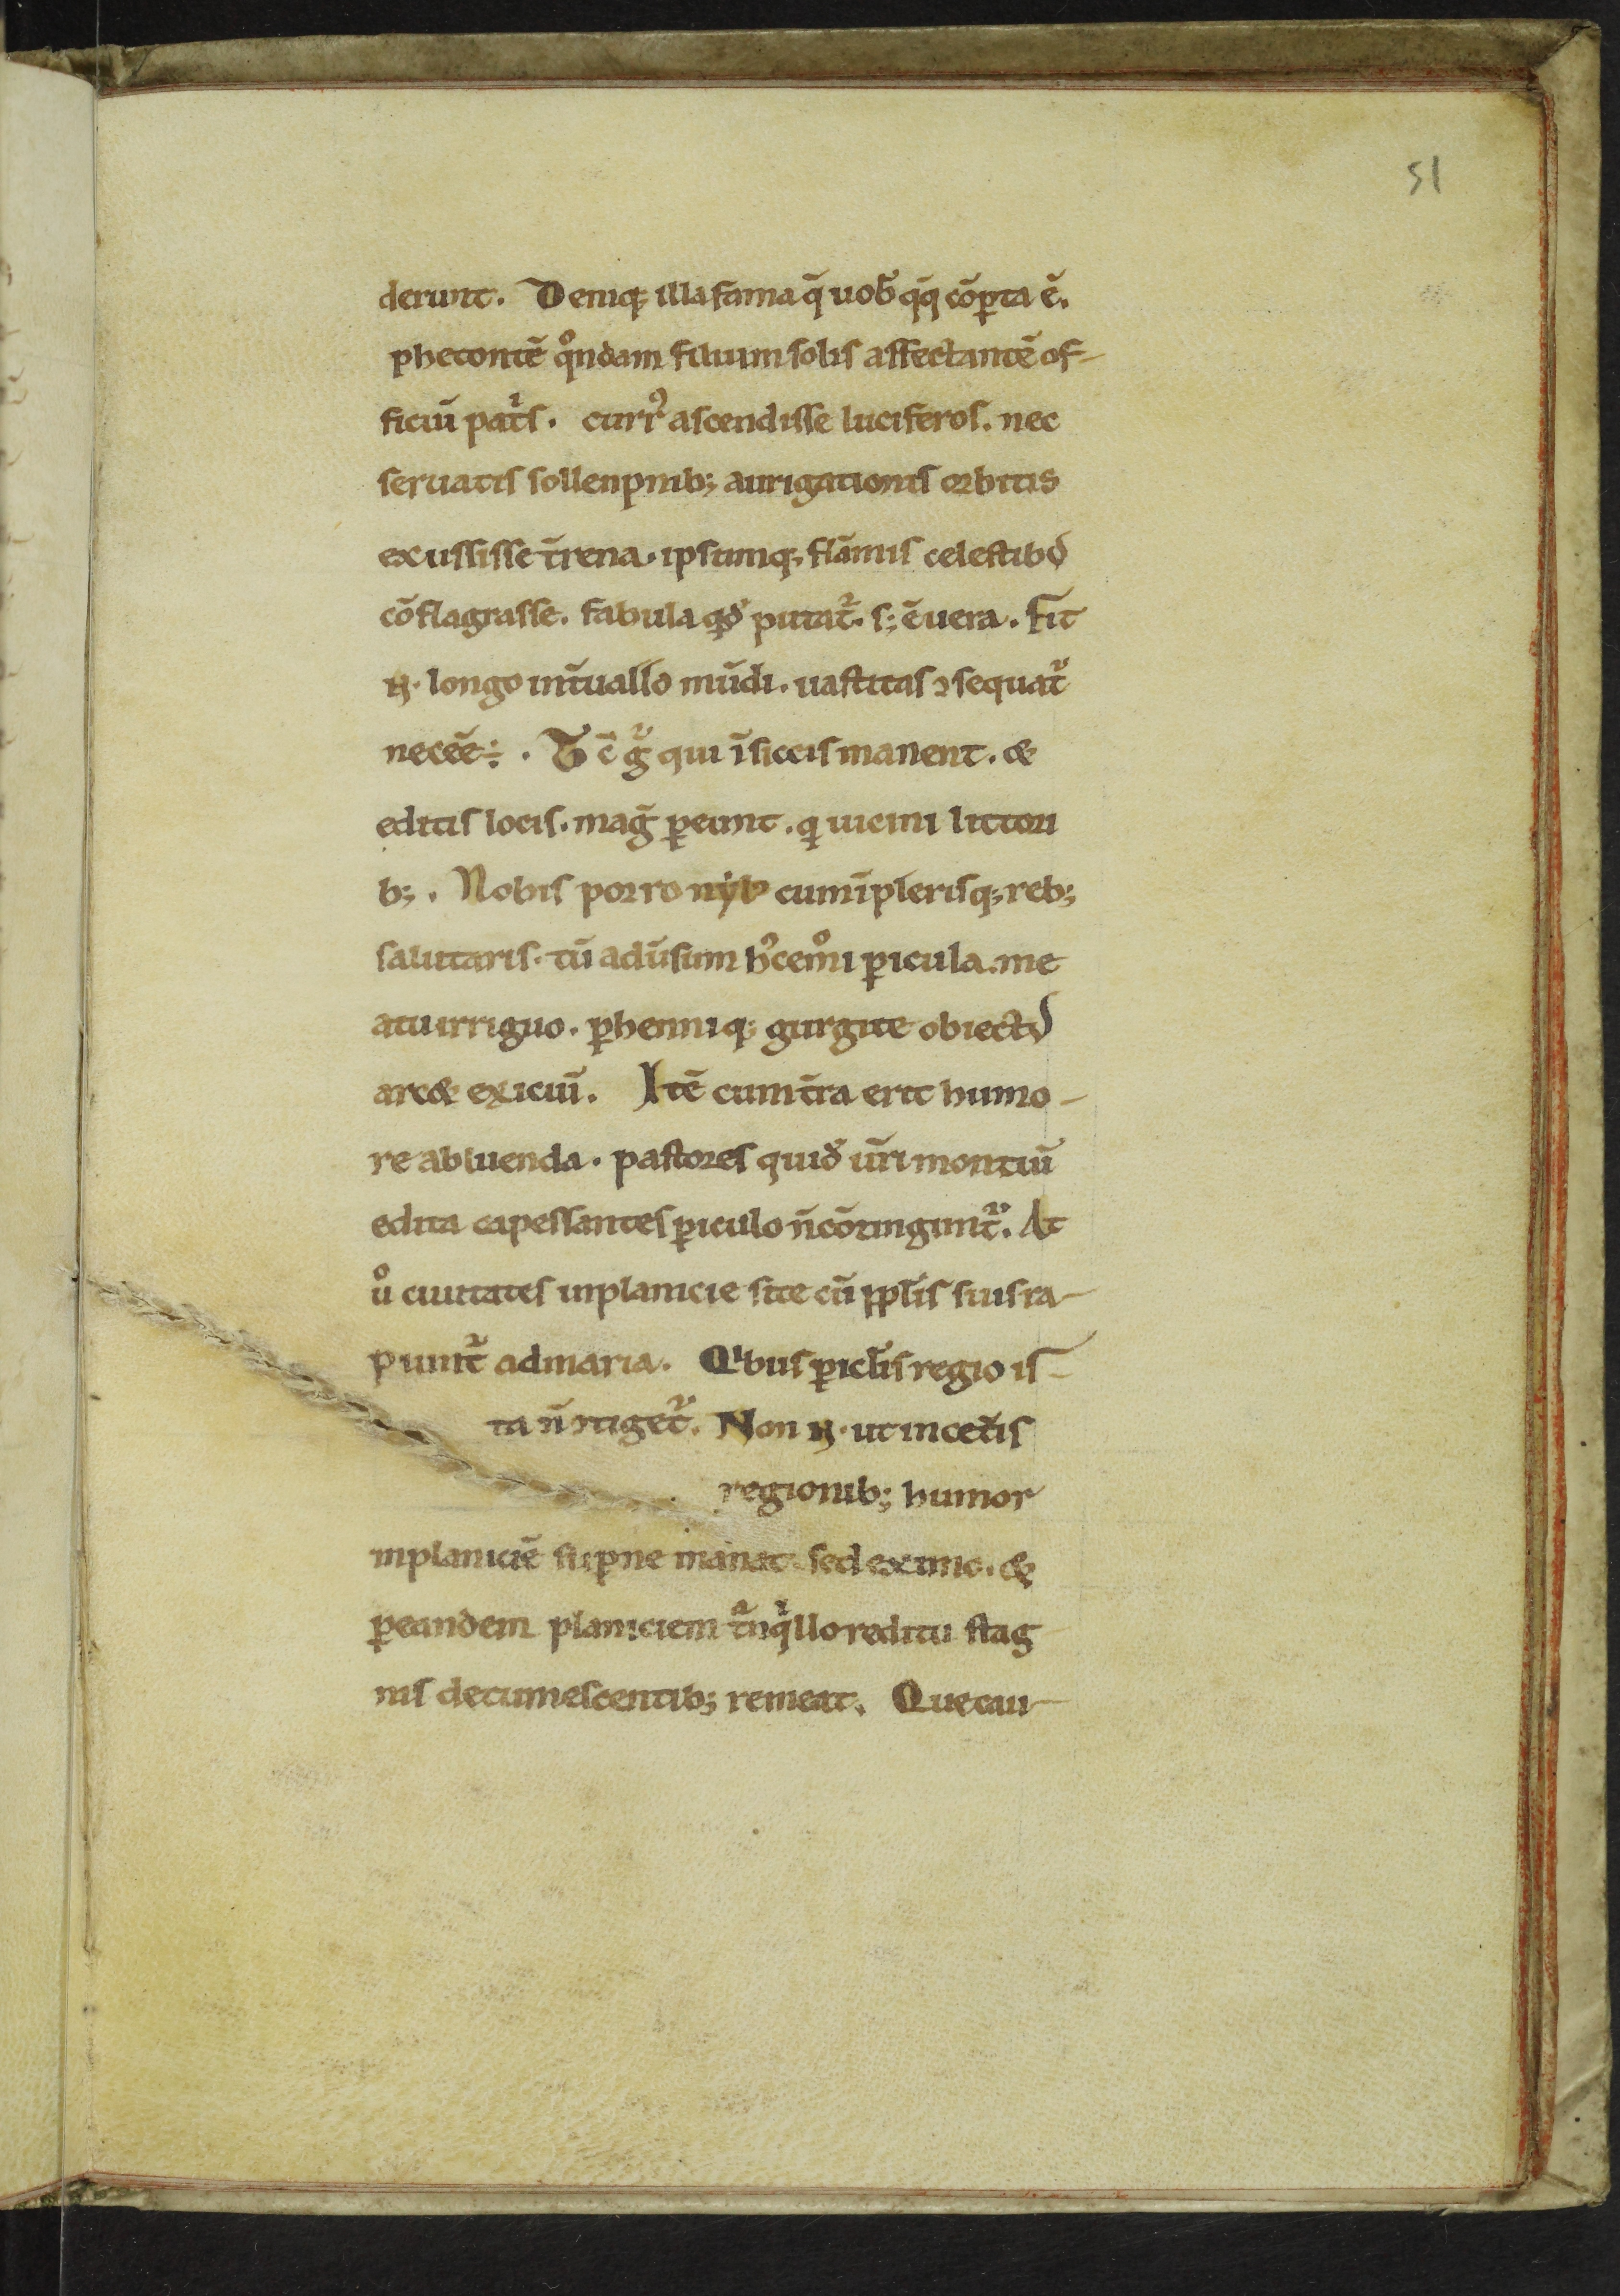 51
derunt. Deniq; illa fama q̄ uob̄ qq̄ cōꝑta ē.
phetontē qͦndam filium solis affectantē of-
ficiū patͥs. curr᷒ ascendisse luciferos. nec
seruatis sollenpnib; aurigationis orbitis
exussisse t̄rena. ipsumq; flāmis celestibꝰ
cōflagrasse. fabula qd̄ putat᷑. s; ē uera. Fit
.n. longo int̄uallo mūdi. uastitas ꝯsequat᷑
neceē ÷. Tc̄ gͬ qui ī siccis manent. &
editis locis. maḡ ꝑeunt. qͥ uicini littori
b;. Nobis porro nyl̓ cum ī plerisq; reb;
salutaris. tū aduſum hͨcemͦi ꝑicula. me
atu irriguo. ꝑhenniq; gurgite obiectꝰ
arc& exiciū. Itē cum t̄ra erit humo-
re abluenda. pastores quid̄ ūri montiū
edita capessantes ꝑiculo n̄ cōtingunt᷑. At
uͦ ciuitates inplanicie site cū ppl̄is suis ra-
piunt᷑ admaria. Qͥbus ꝑicl̄is regio is-
ta n̄ ītiget᷑. Non .n. ut in cet̄is
regionib; humor
inplaniciē suꝑne manat. sed ex imo. &
ꝑ eandem planiciem tᷓnqͥllo reditu stag
nis detumescentib; remeat. Que cau-